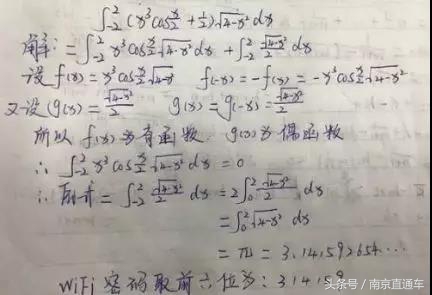 ∫₋₂² (x³cos x/2 + 1/2)√4-x² dx
解: = ∫₋₂² x³cos x/2 √4-x² dx + ∫₋₂² √4-x²/2 dx
设 f(x) = x³cos x/2 √4-x² f(-x) = -f(x) = -x³cos x/2 √4-x²
又设 g(x) = √4-x²/2 g(x) = g(-x) = √4-x²/2
所以 f(x) 为奇函数 g(x) 为偶函数
∴ ∫₋₂² x³cos x/2 √4-x² dx = 0
∴ 原式 = ∫₋₂² √4-x²/2 dx = 2∫₀² √4-x²/2 dx
= ∫₀² √4-x² dx
= π = 3.141592654...
WiFi 密码取前六位为: 314159
头条号 / 南京直通车